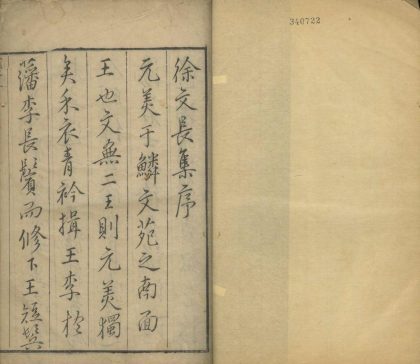 徐文長集序
元美于鱗文苑之南面
王也文無二王則元美獨
矣禾衣青衿揖王李於
藩李長鬢而修下王短鬢
340722